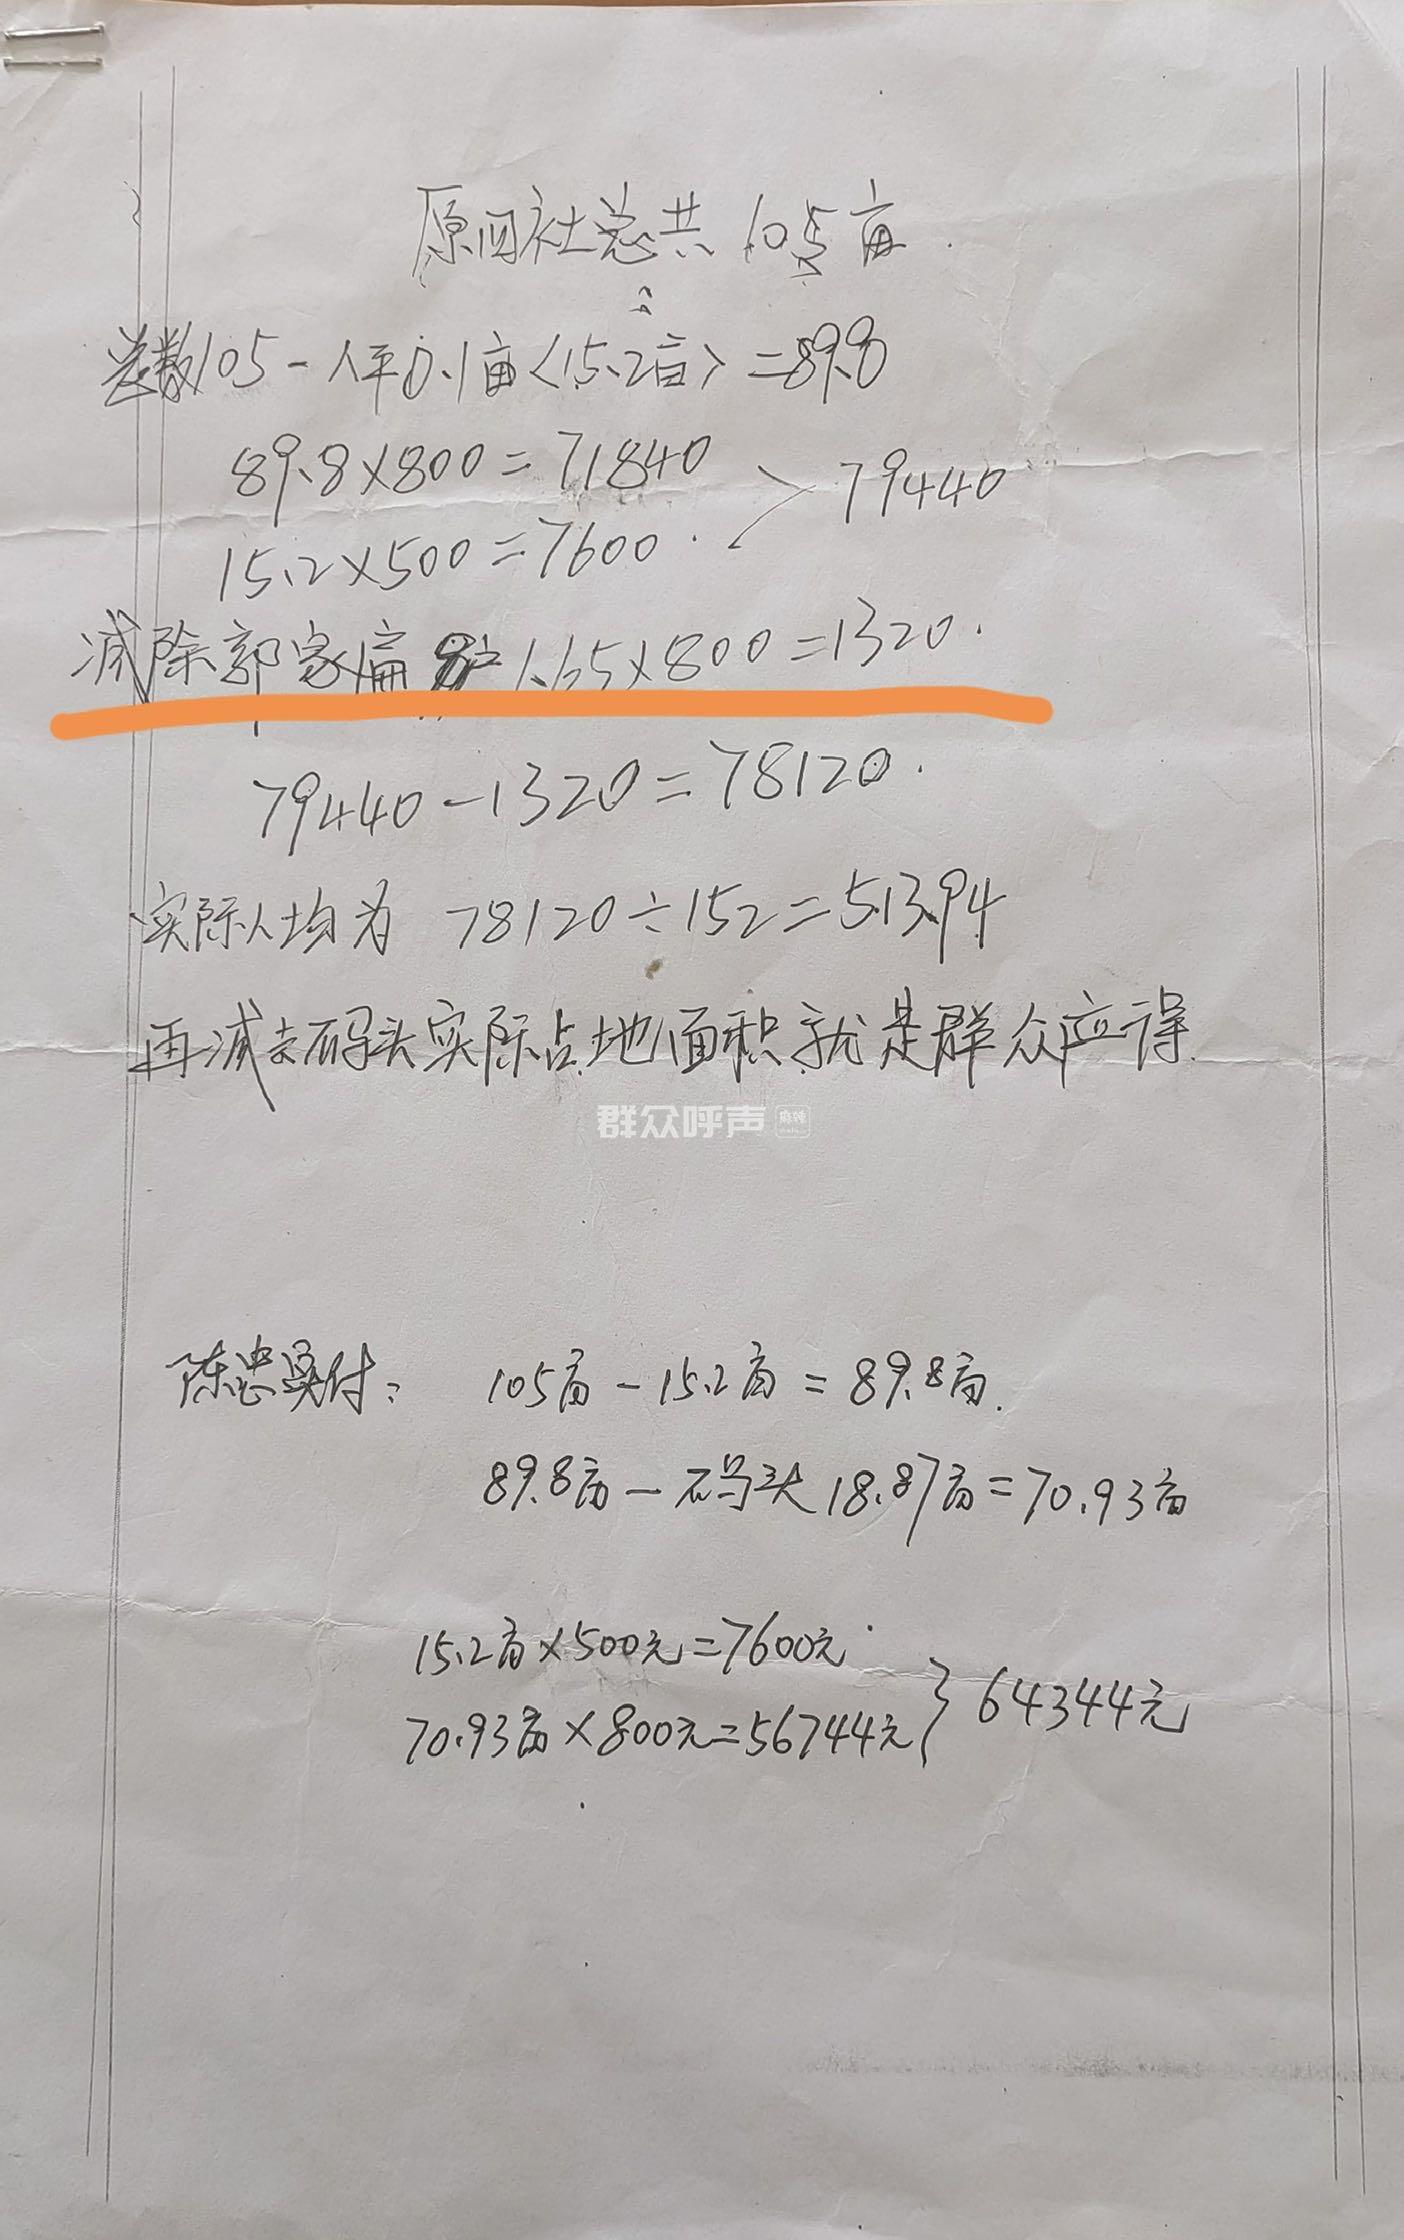 原四社总共105亩.
总数105-人平0.1亩<15.2亩>=89.8
89.8×800=71840
> 79440
15.2×500=7600.
减除郭家扁 1.65×800=1320.
79440-1320=78120.
实际人均为 78120÷152=513.94
再减去码头实际占地面积就是群众应得.
群众呼声 麻辣
陈忠实付: 105亩-15.2亩=89.8亩.
89.8亩-码头18.87亩=70.93亩
15.2亩×500元=7600元
} 64344元
70.93亩×800元=56744元